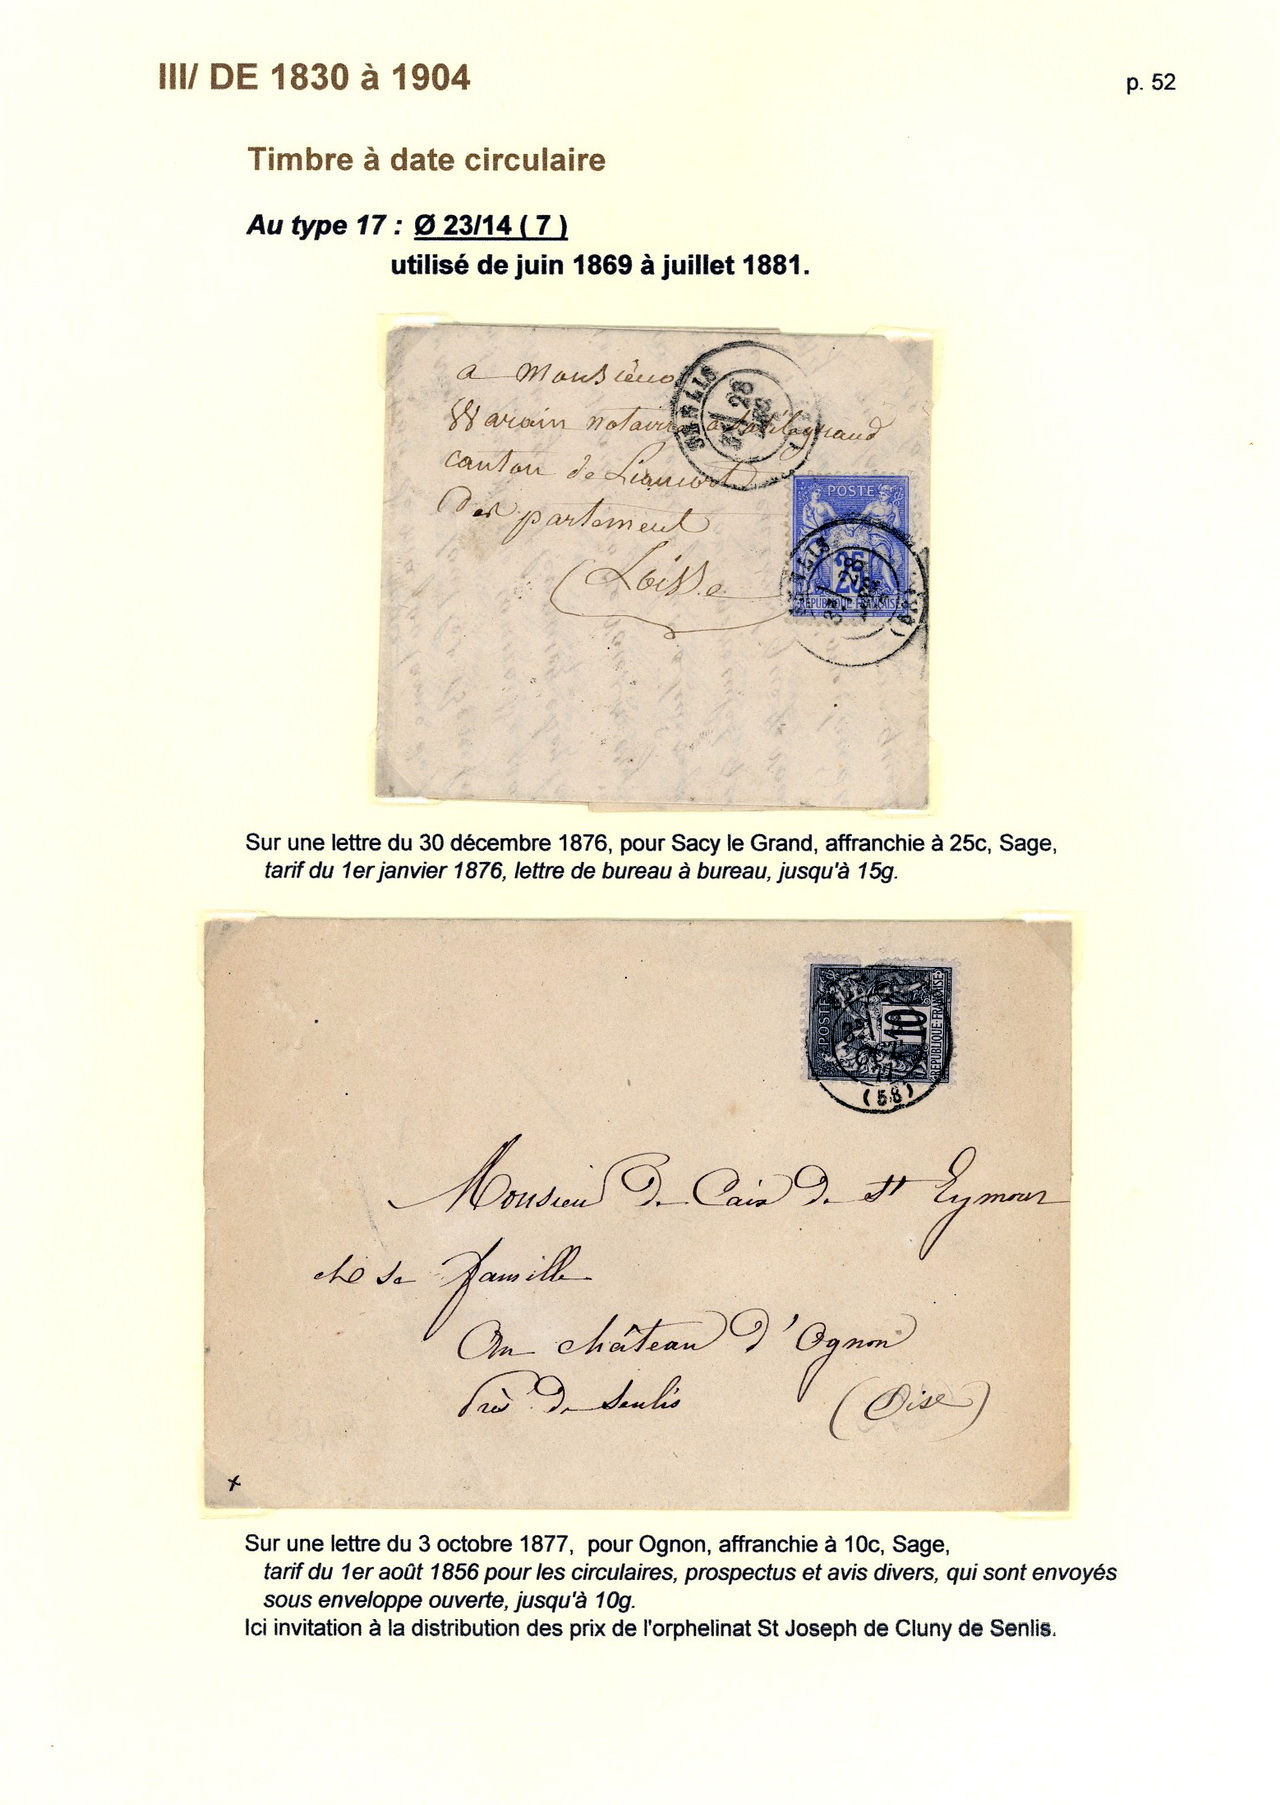 III/ DE 1830 à 1904
p. 52
Timbre à date circulaire
Au type 17 : Ø 23/14 ( 7 )
utilisé de juin 1869 à juillet 1881.
a Monsieur
Warain notaire à
canton de Liancort
Des partement
Loisse
SENLIS
28
POSTE
25
REPUBLIQUE FRANÇAISE
Sur une lettre du 30 décembre 1876, pour Sacy le Grand, affranchie à 25c, Sage,
tarif du 1er janvier 1876, lettre de bureau à bureau, jusqu'à 15g.
POSTE
10
REPUBLIQUE FRANÇAISE
OCT
77
(58)
Monsieur De Caix De St Eymour
et sa famille
Au château d'Ognon
Près De Senlis (Oise)
Sur une lettre du 3 octobre 1877, pour Ognon, affranchie à 10c, Sage,
tarif du 1er août 1856 pour les circulaires, prospectus et avis divers, qui sont envoyés
sous enveloppe ouverte, jusqu'à 10g.
Ici invitation à la distribution des prix de l'orphelinat St Joseph de Cluny de Senlis.